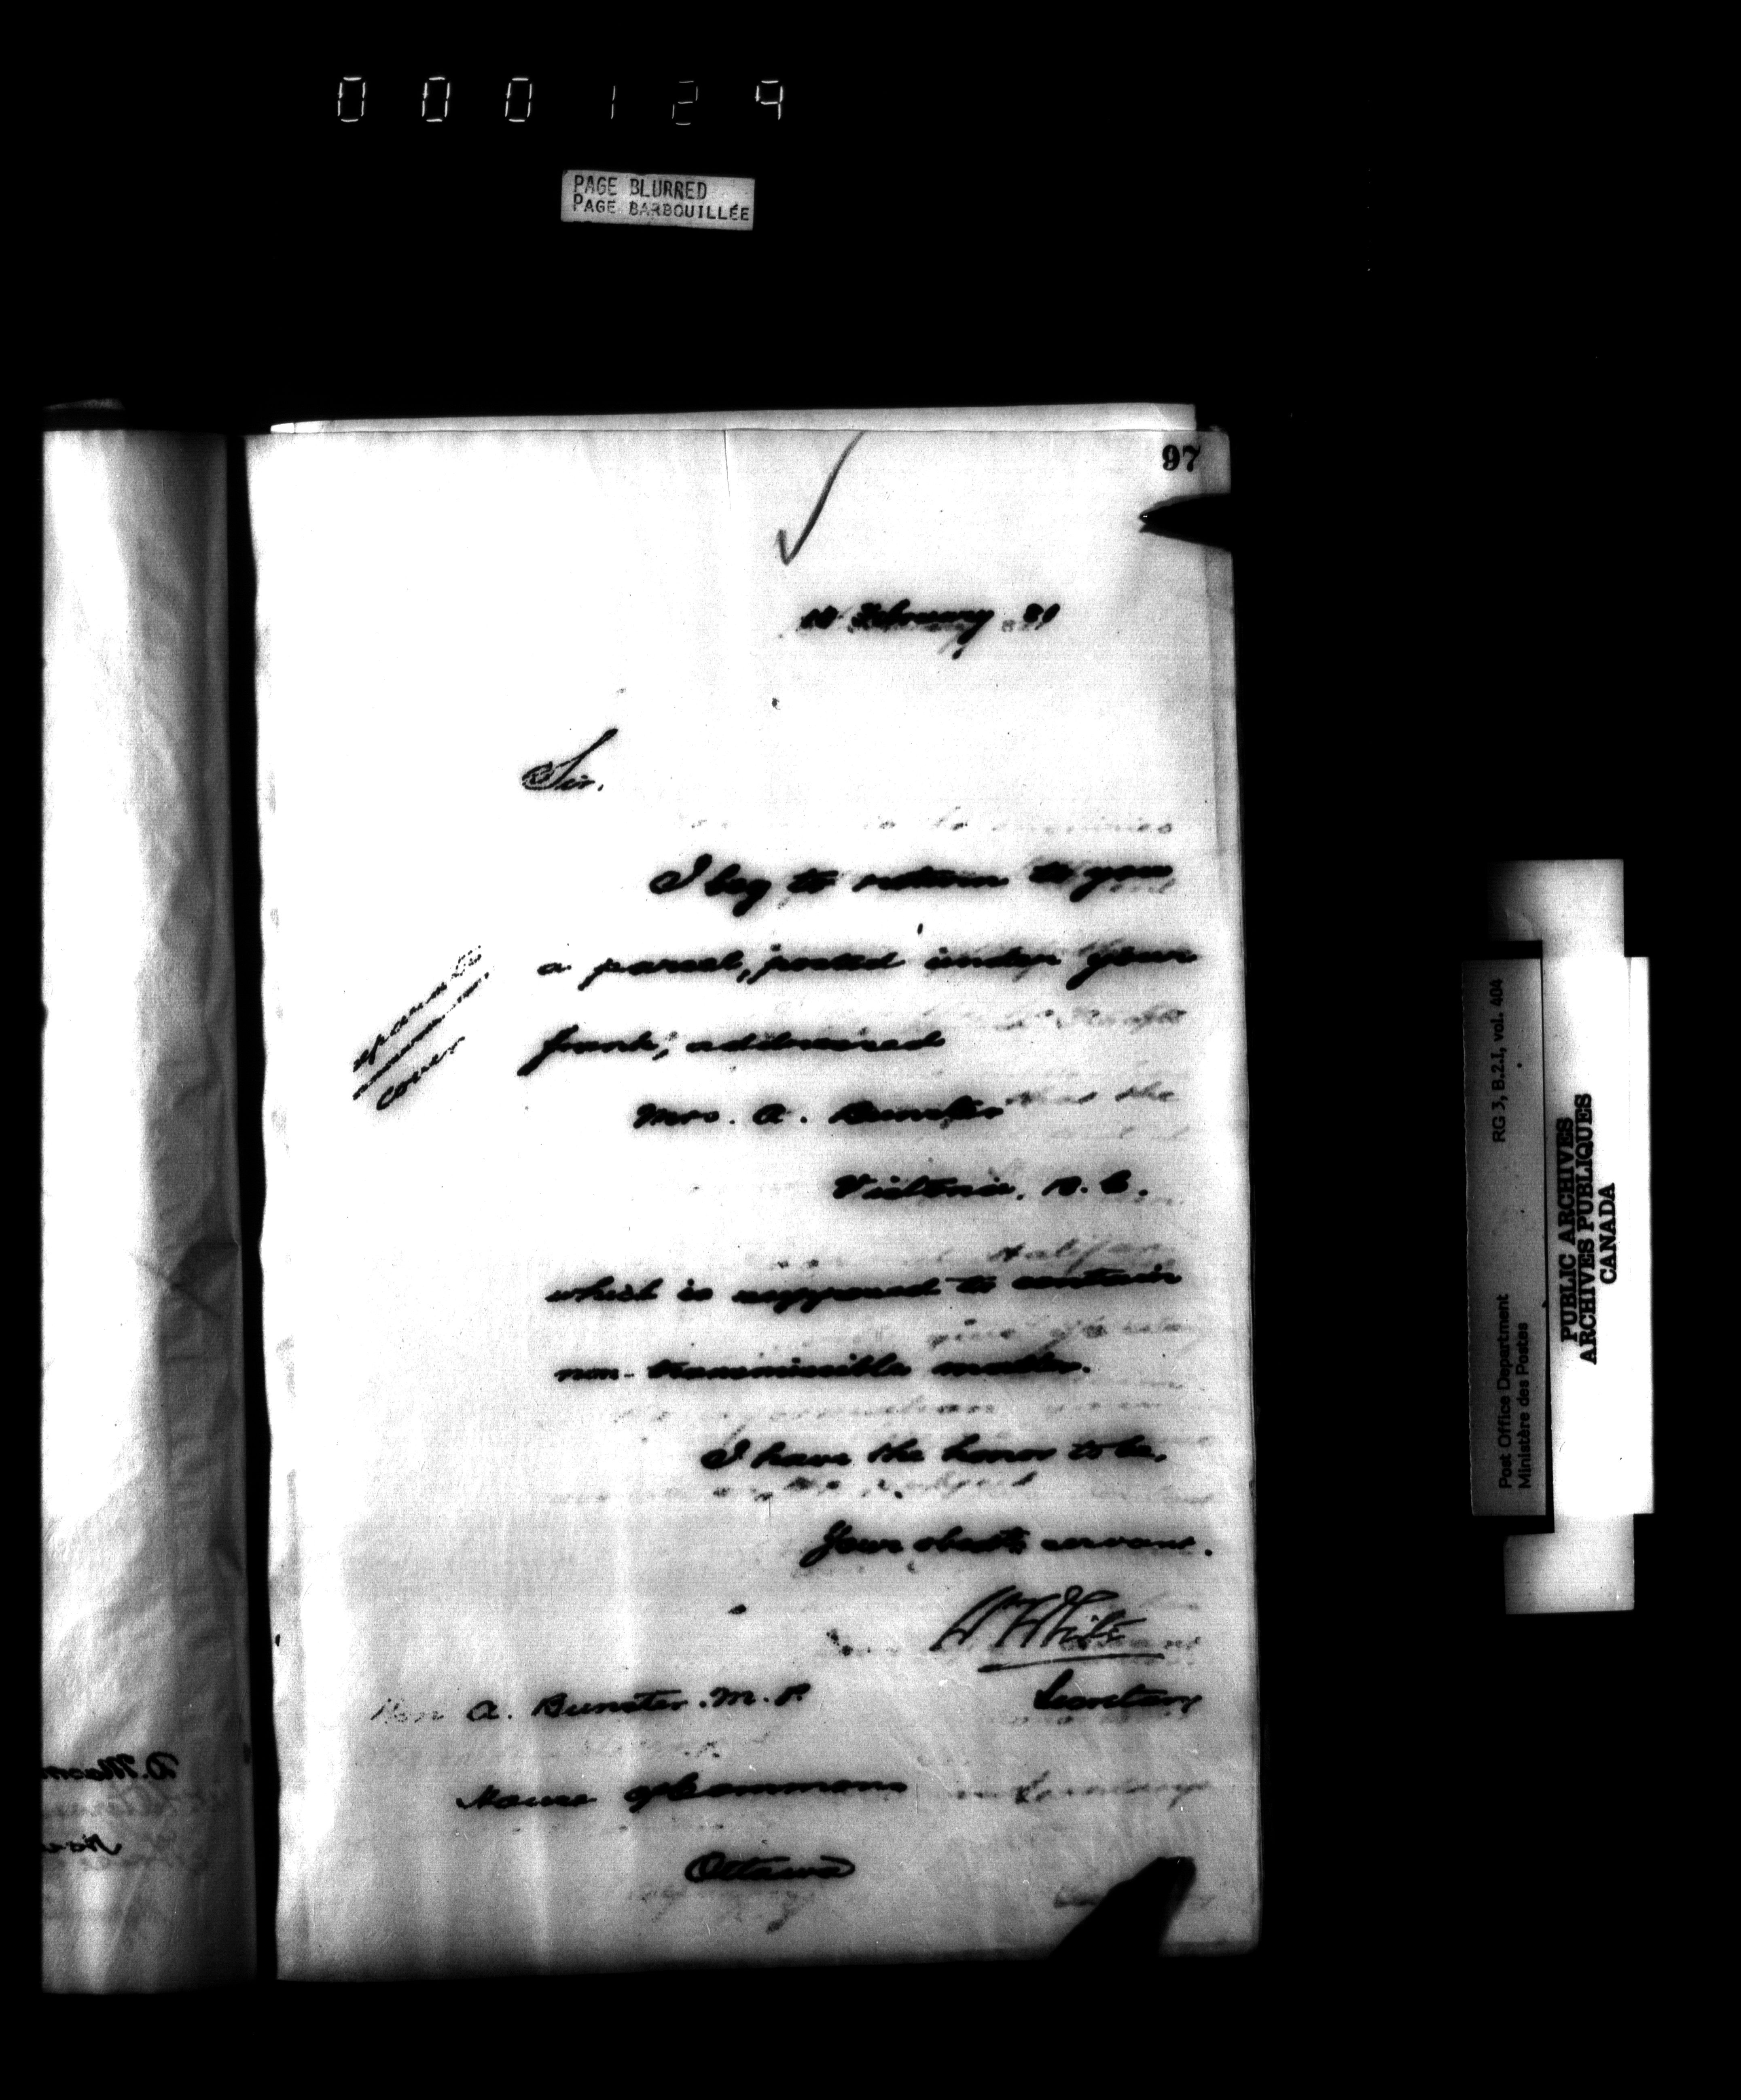 000129
PAGE BLURRED
PAGE BARBOUILLÉE
97
February 81
Sir.
I beg to return to you
a parcel, posted under your
separate
cover
frank, addressed
Mrs. A. Bunster
Victoria. B.C.
which is supposed to contain
non-transmissible matter.
I have the honor to be,
Your obedt servant.
Wm White
Secretary
Hon A. Bunster. M.P.
House of Commons
Ottawa
Post Office Department RG 3, B.2.I, vol. 404
Ministère des Postes
PUBLIC ARCHIVES
ARCHIVES PUBLIQUES
CANADA